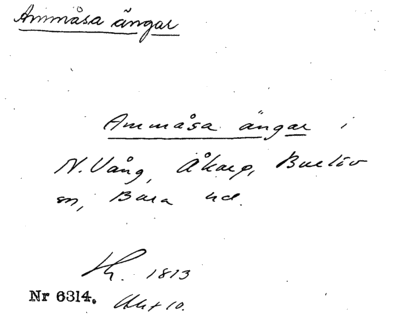 Ammåsa ängar
Ammåsa ängar i
N. Vång, Åkarp, Burlöv
sn, Bara hd.
1813
Nr 6314. Akt 10.